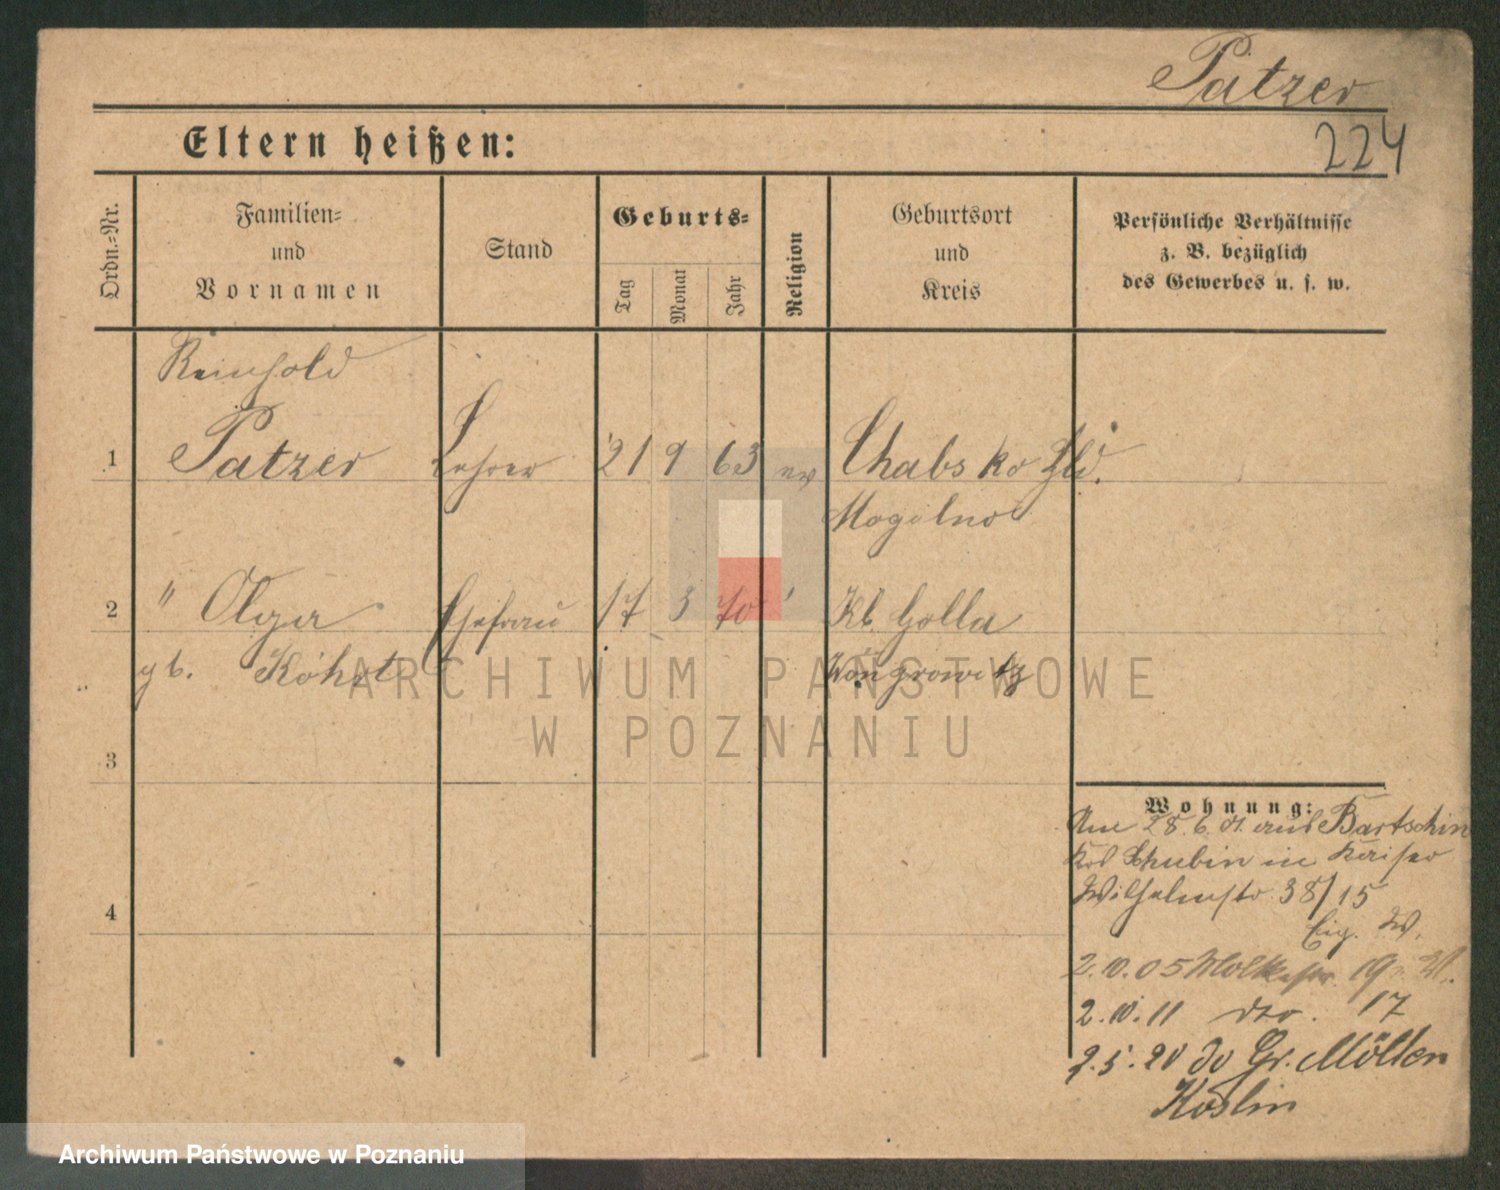 Patzer
224
Eltern heißen:
Ordn.=Nr.
Familien=
und
Vornamen
Stand
Geburts=
Tag
Monat
Jahr
Religion
Geburtsort
und
Kreis
Persönliche Verhältnisse
z. B. bezüglich
des Gewerbes u. s. w.
Reinhold
1 Patzer Lehrer 21 9 63 ev Chabsko
Mogilno
2 " Olga Ehefrau 17 3 70 Kl. Golla
gb. Wongrowitz
ARCHIWUM PAŃSTWOWE
W POZNANIU
3
Wohnung:
28.6.01 aus Bartschin
Schubin in Kaiser
Wilhelmstr. 38/15
4
Eig. W.
2.10.05 Moltkestr. 19
2.10.11 dto. 17
5.20 Gr. Möllen
Köslin
Archiwum Państwowe w Poznaniu